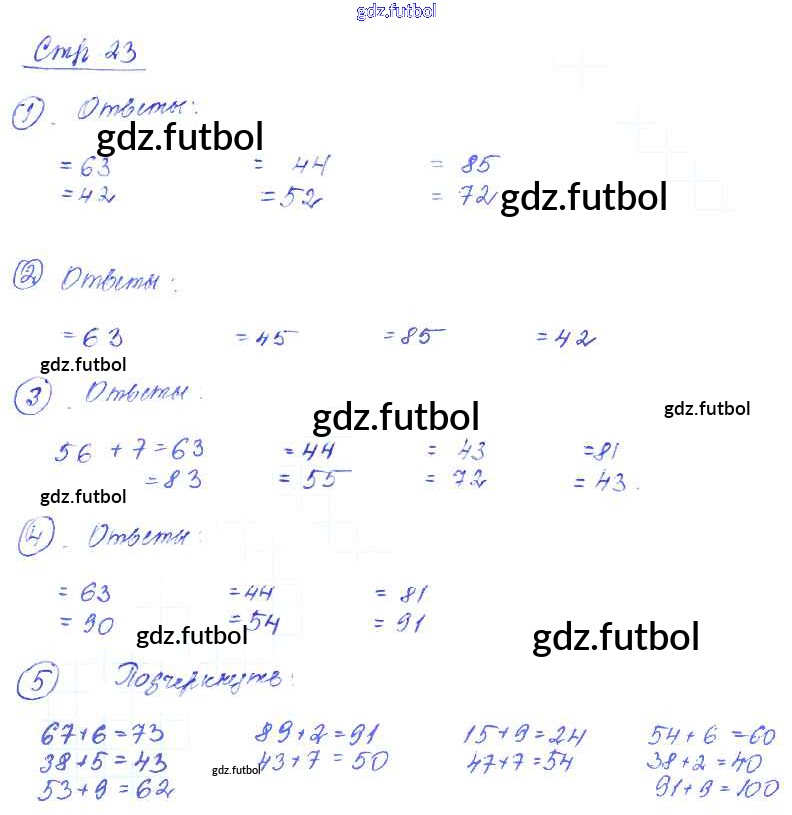 gdz.futbol
Стр 23
1. Ответы:
gdz.futbol
= 63 = 44 = 85
= 42 = 52 = 72 gdz.futbol
2 Ответы:
= 63 = 45 = 85 = 42
gdz.futbol
3. Ответы. gdz.futbol gdz.futbol
56 + 7 = 63 = 44 = 43 = 81
= 83 = 55 = 72 = 43.
gdz.futbol
4. Ответы:
= 63 = 44 = 81
= 90 = 54 = 91
gdz.futbol gdz.futbol
5 Подчеркнуть:
67+6=73 89+2=91 15+9=24 54+6=60
38+5=43 gdz.futbol 43+7=50 47+7=54 38+2=40
53+9=62 91+9=100